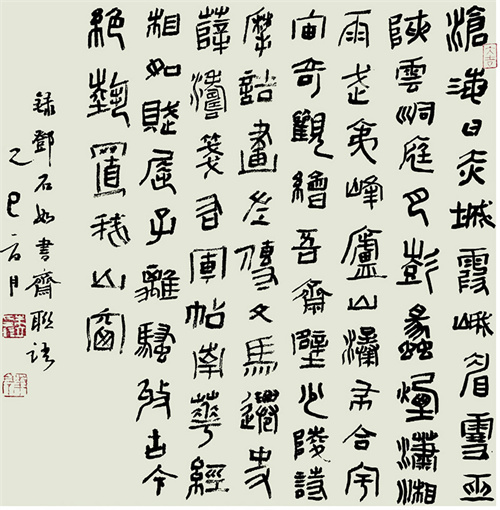 滄海日赤城霞峨眉雪巫
陜雲洞庭月彭蠡煙瀟湘
雨武夷峰廬山瀑布合宇
宙奇觀繪吾齋壁少陵詩
摩詰畫左傳文馬遷史
薛濤箋右軍帖南華經
相如賦屈子離騷收古今
絕藝置我山窗
錄鄧石如書齋聯語
乙巳月
大吉